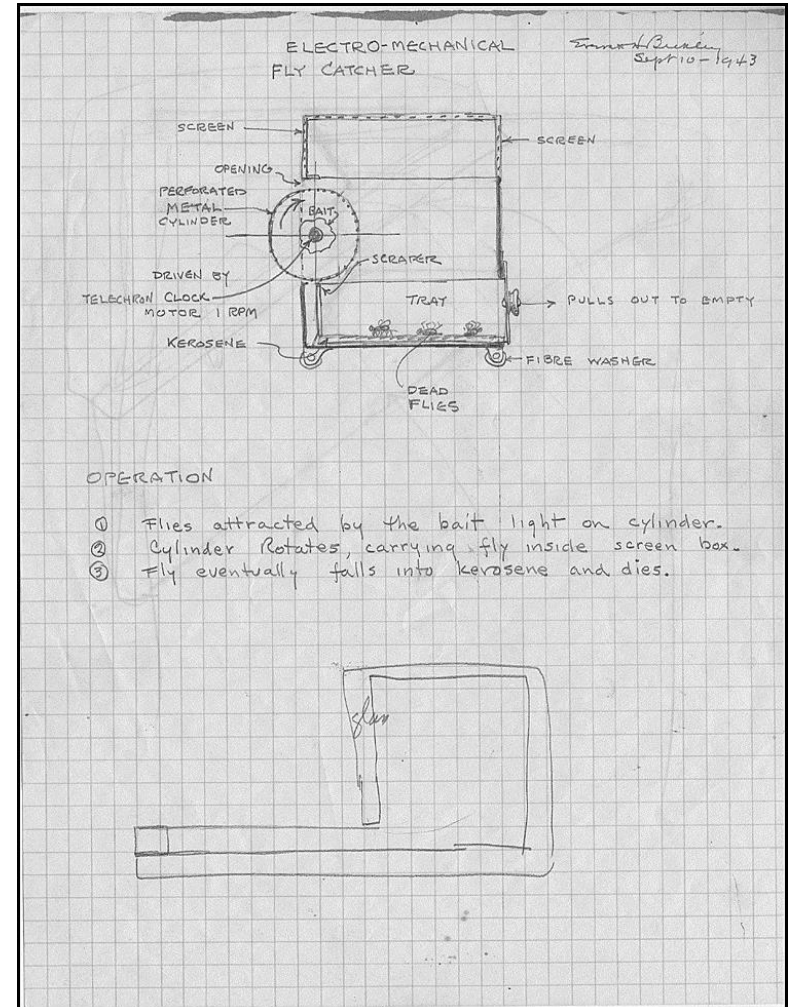 ELECTRO-MECHANICAL
FLY CATCHER
Sept 10-1943
SCREEN
SCREEN
OPENING
PERFORATED
METAL
CYLINDER
BAIT
SCRAPER
DRIVEN BY
TELECHRON CLOCK
MOTOR 1 RPM
TRAY
PULLS OUT TO EMPTY
KEROSENE
FIBRE WASHER
DEAD
FLIES
OPERATION
① Flies attracted by the bait light on cylinder.
② Cylinder Rotates, carrying fly inside screen box.
③ Fly eventually falls into kerosene and dies.